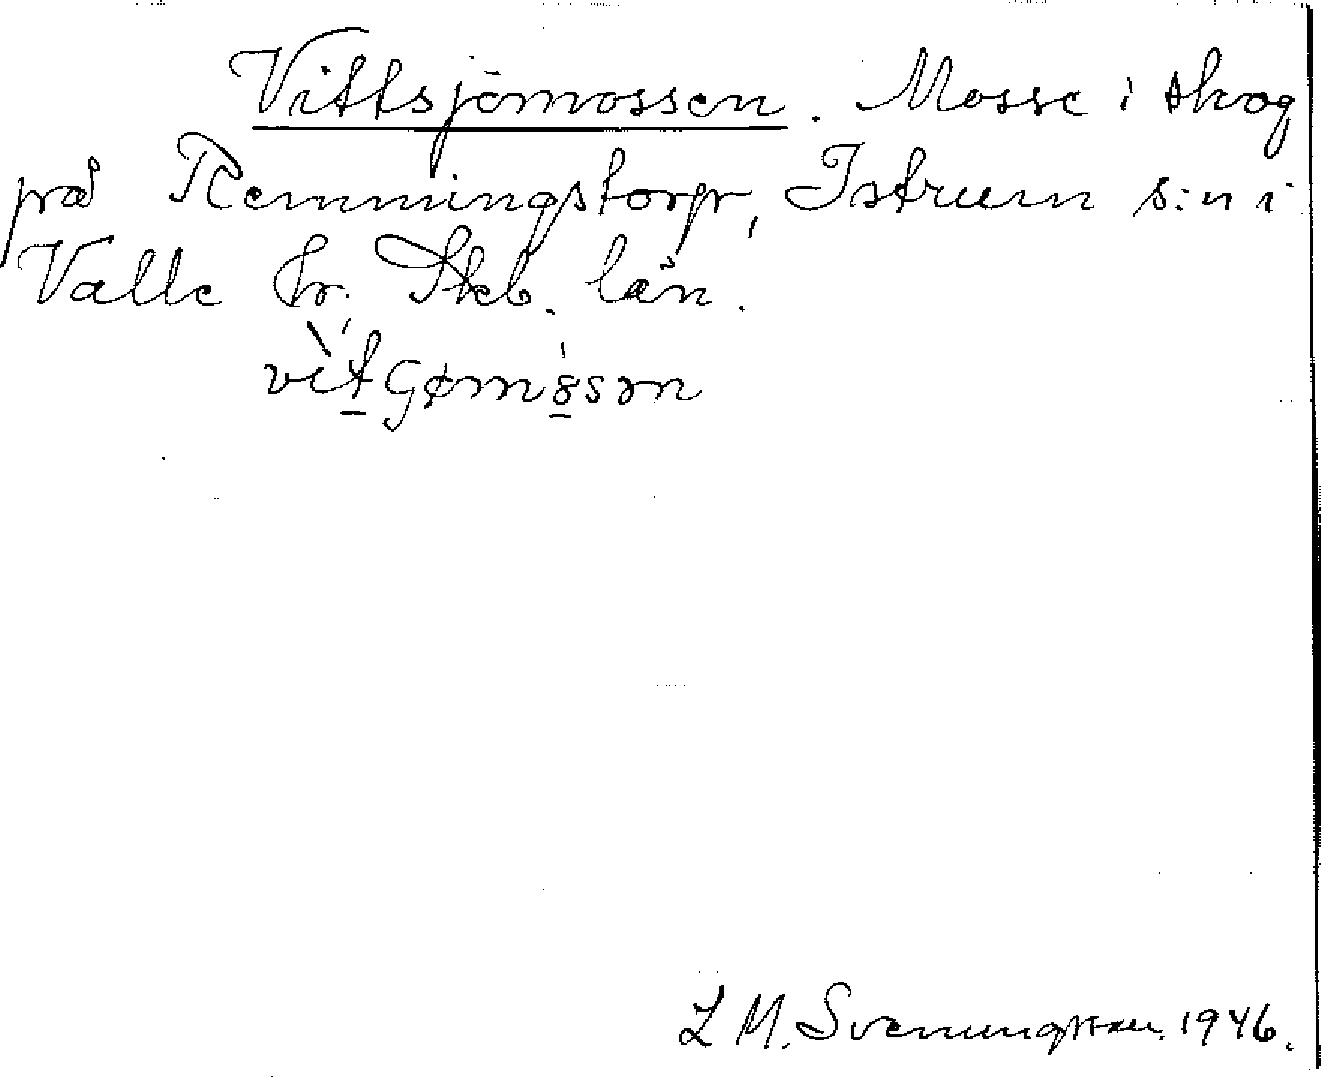 Vittsjömossen. Mosse i skog
på Remmingstorp, Istrum s:n i
Valle hr. Skb. län.
L M. Svenungsson. 1946.